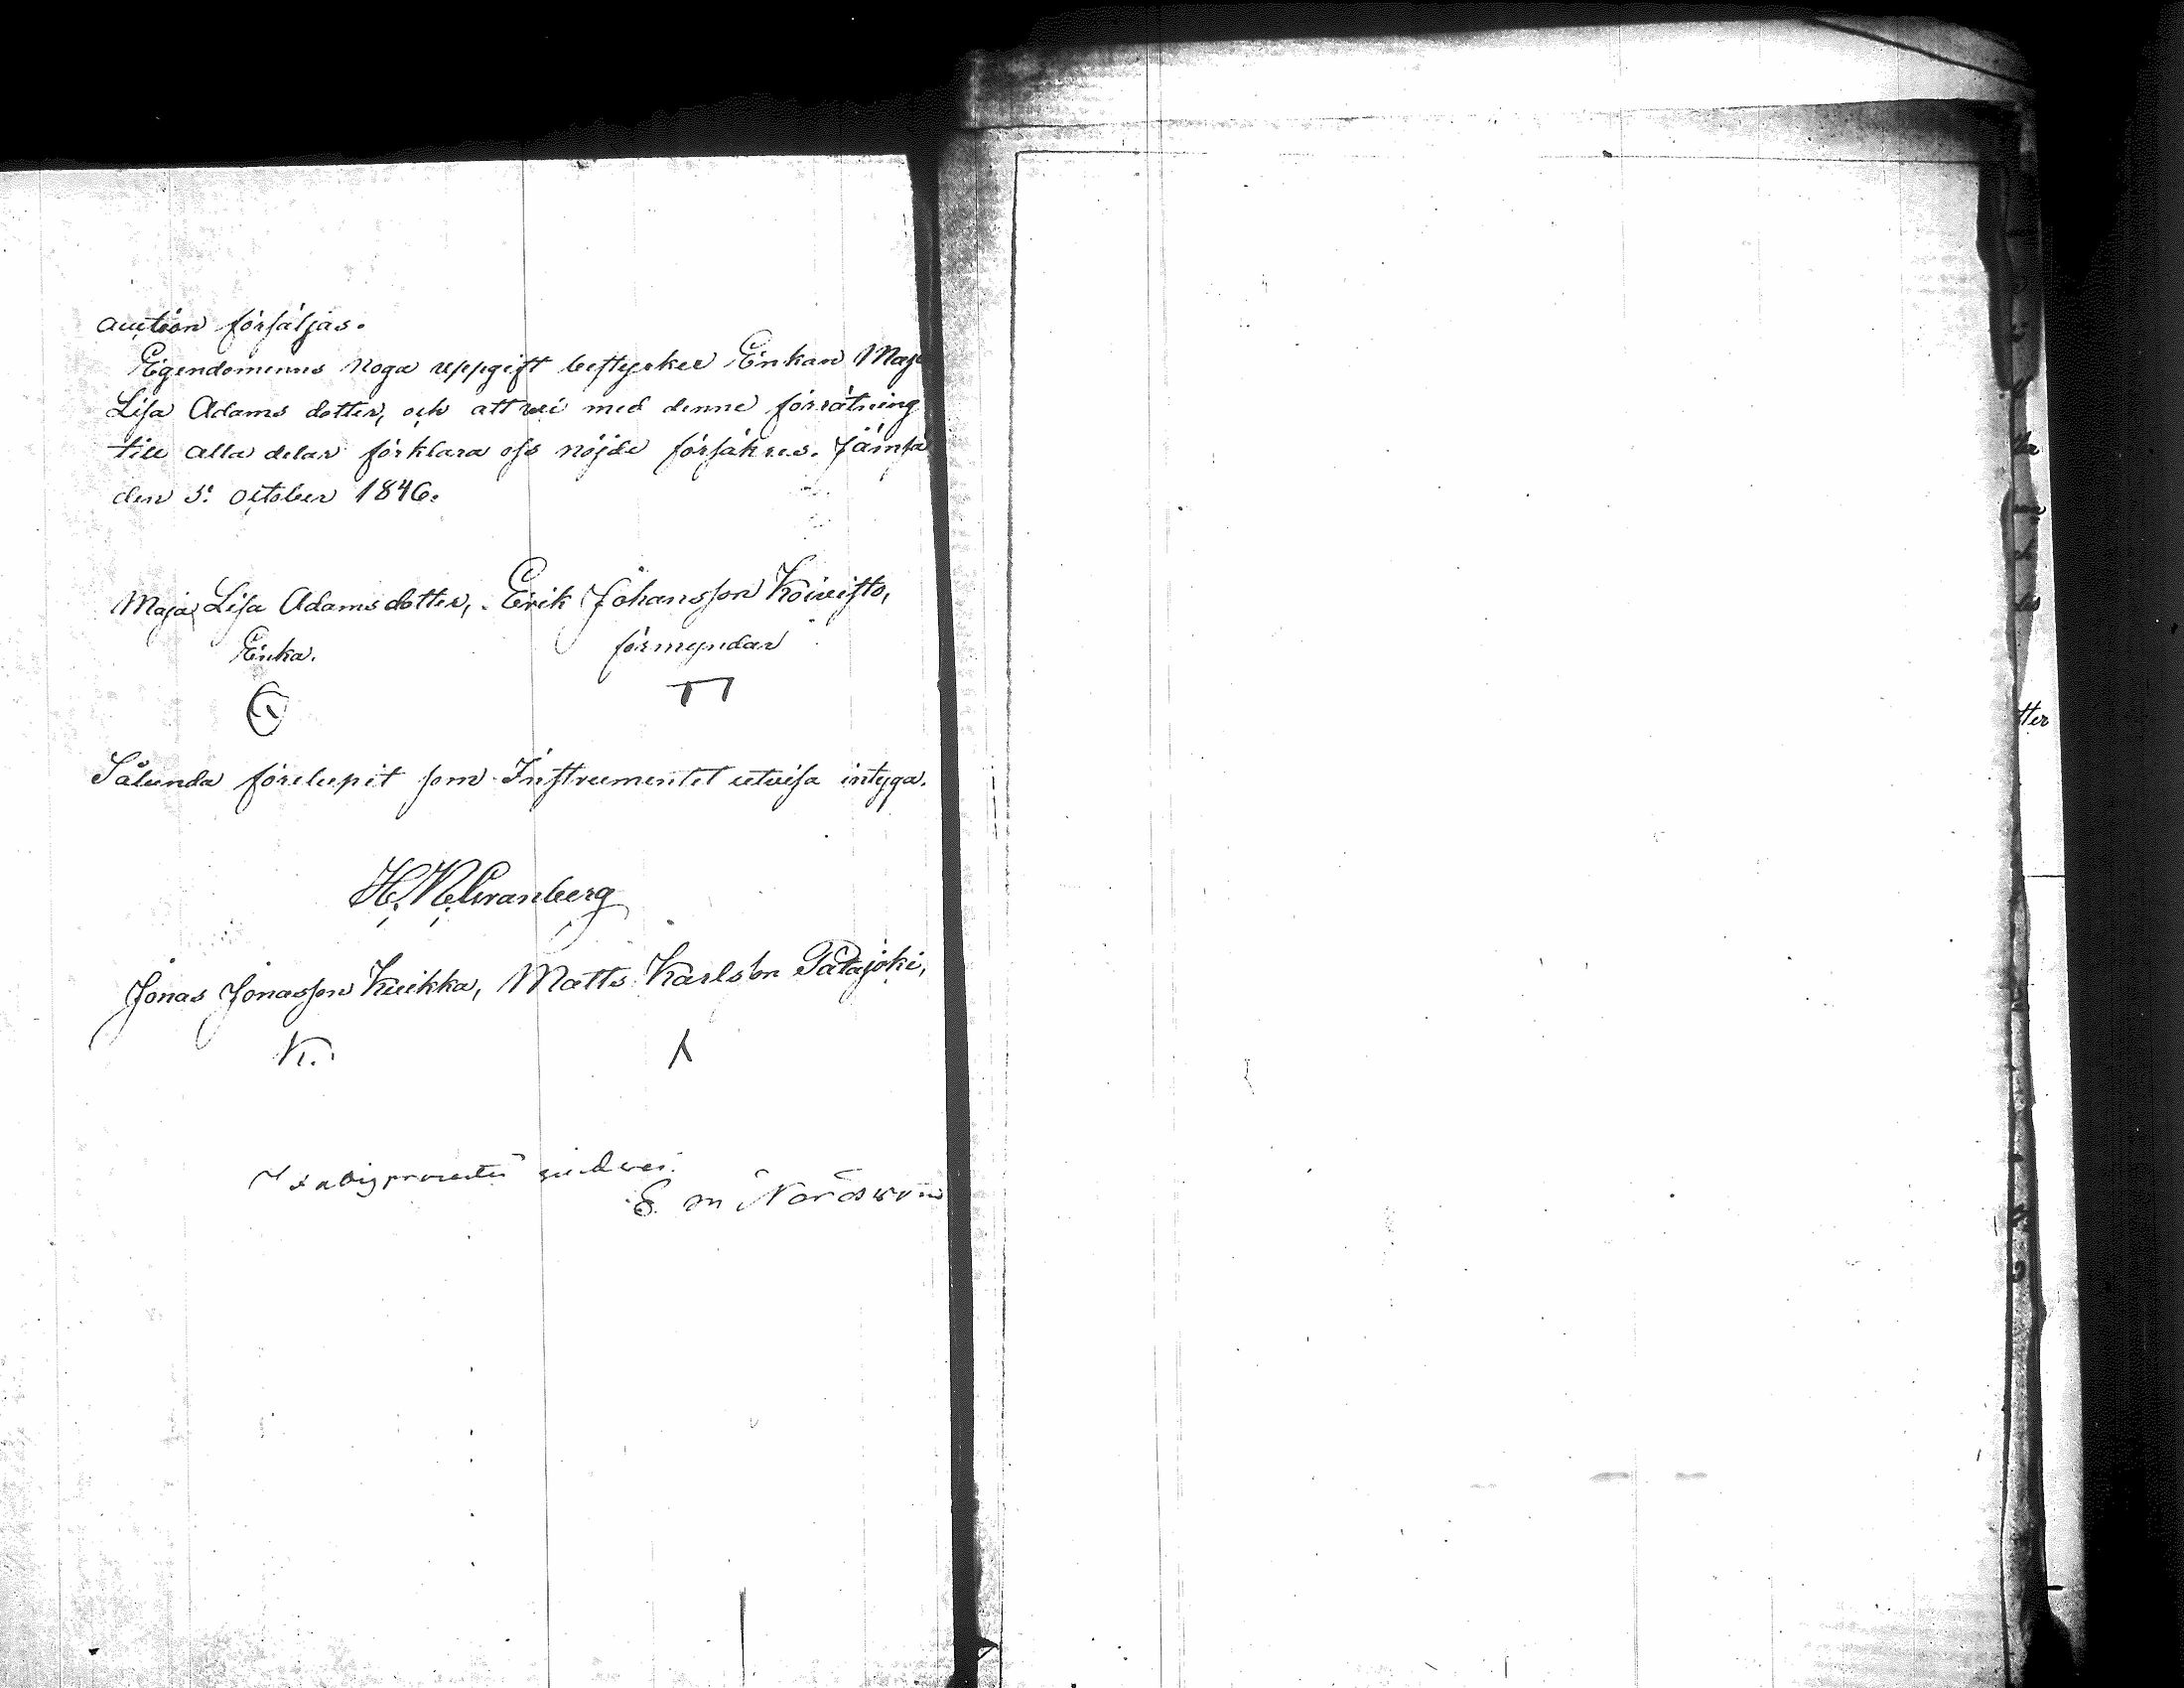 auction försäljas.
Egendomens noga uppgift bestyrker Enkan Maja
Lisa Adams dotter, och att wi med denne förrätning
till alla delar förklara oss nöjde försäkres. Jämsä
den 5: october 1846.
Maja Lisa Adamsdotter, Erik Johansson Koivisto,
Enka. förmyndar
Sålunda förelupit som Instrumentet utvisa intyga.
H. N. Granberg
Jonas Jonasson Kuikka, Matts Karlsson Patajoki,
K.
E M
tter